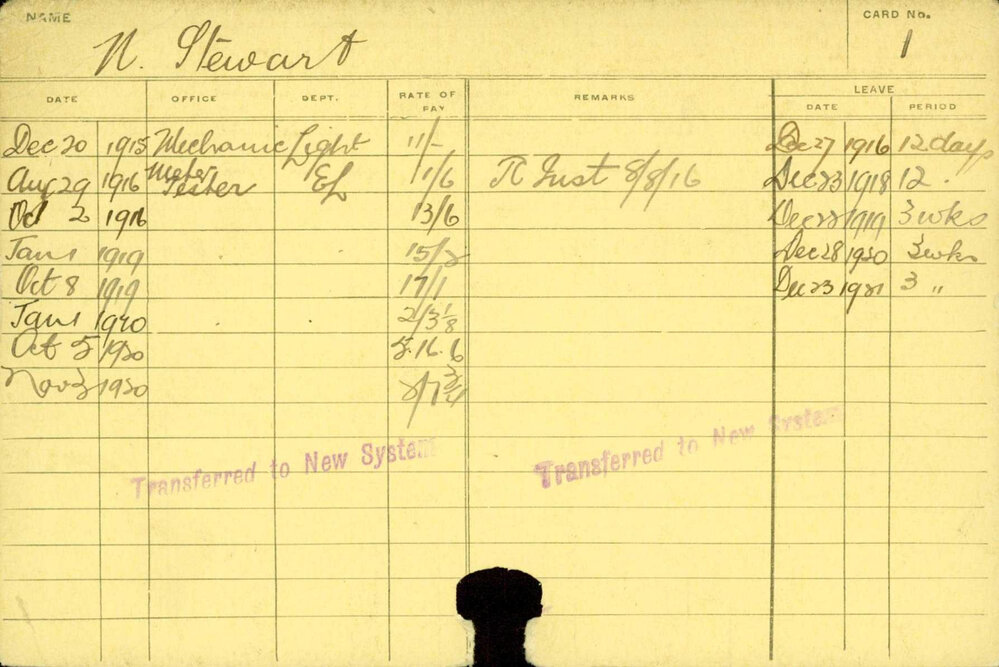 NAME
CARD No.
N. Stewart
1
DATE OFFICE DEPT. RATE OF PAY REMARKS LEAVE
DATE PERIOD
Dec 20 1915 Mechanic Light 11/- Dec 27 1916 12 days
Aug 29 1916 Meter Tester EL 1/6 R Inst 8/8/16 Dec 23 1918 12 .
Oct 2 1916 13/6 Dec 1919 3 wks
Jan 1 1919 15/2 Dec 28 1920 3 wks
Oct 8 1919 17/1 Dec 23 1921 3 "
Jan 1 1920 2/3 1/8
Oct 5 1920 5.16.6
Nov 3 1920 2/7 3/4
Transferred to New System
Transferred to New System